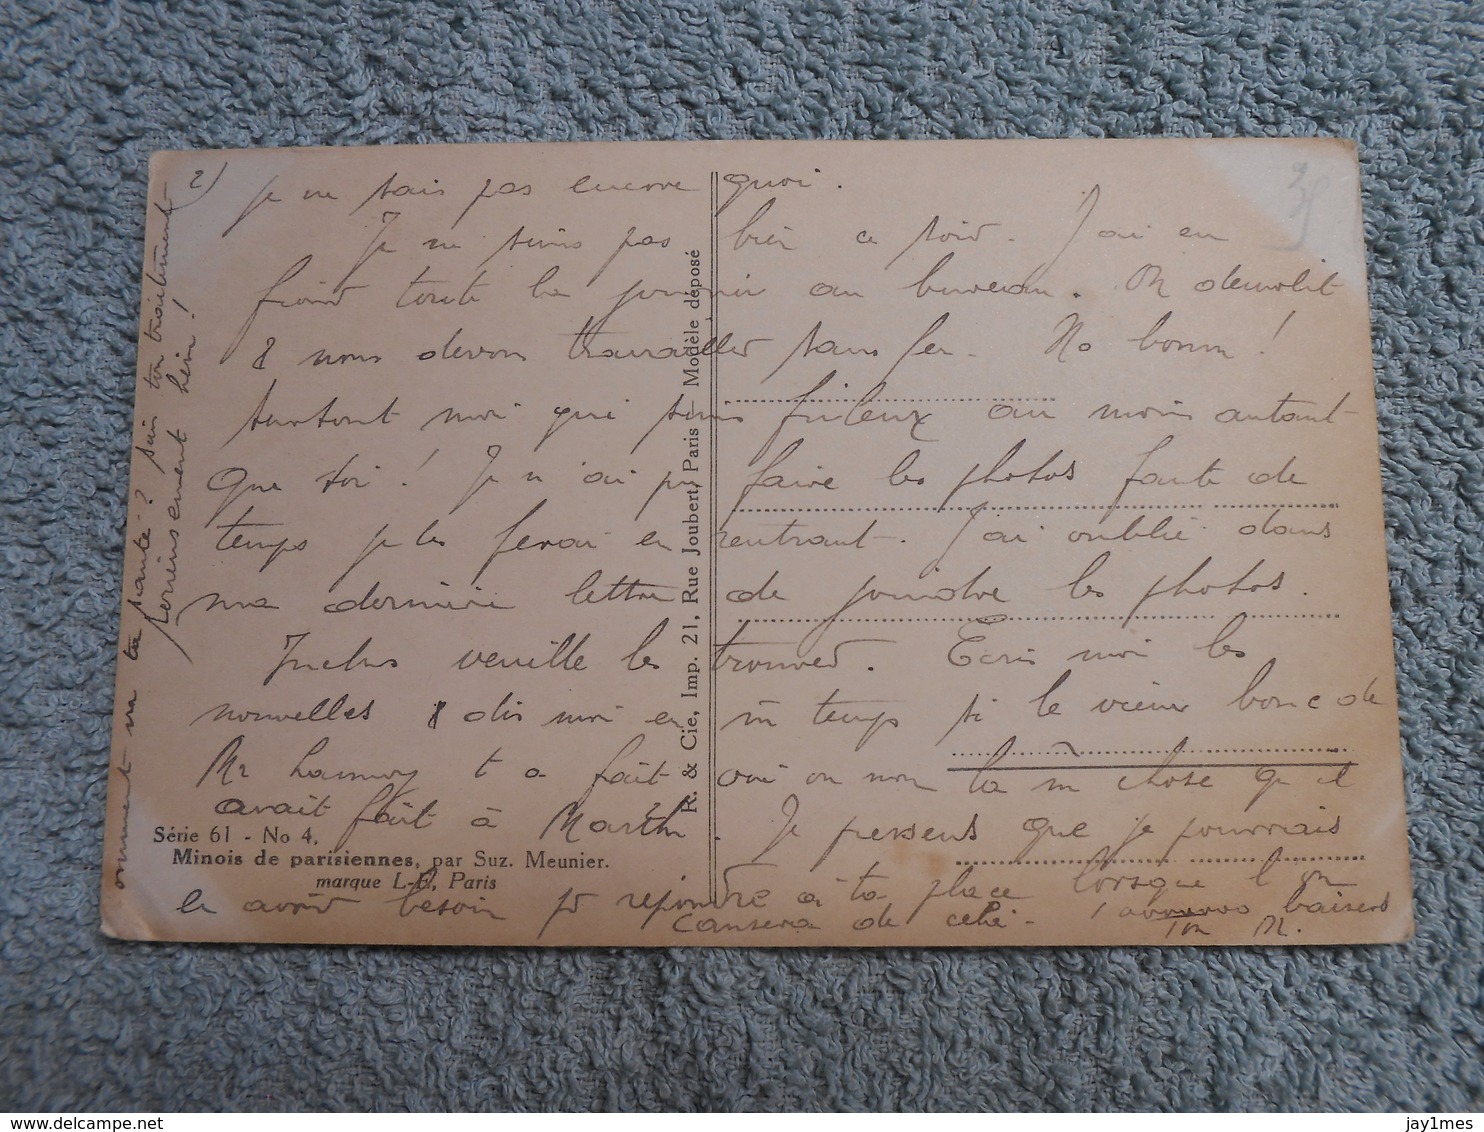 2) je ne sais pas encore quoi.
Je ne suis pas bien ce soir. J'ai eu
froid toute la journée au bureau. On démolit
& nous devons travailler sans feu. Ho bonne!
surtout moi qui suis frileux au moins autant
que toi! Je n'ai pu faire les photos faute de
temps je les ferai en rentrant. J'ai oublié dans
ma dernière lettre de joindre les photos.
Inclus veuille les trouver. Ecris moi les
nouvelles & dis moi en m temps si le vieux bouc de
Mr Lannoy t a fait oui ou non la m chose qu il
avait fait à Marth. Je pensens que je pourrais
en avoir besoin pr rejoindre à ta place lorsque l'on
causera de cela. 1000000 baisers
Ton M.
comment va ta santé? suis ton traitement
serieusement hein!
R. & Cie, Imp. 21, Rue Joubert, Paris - Modèle déposé
Série 61 - No 4.
Minois de parisiennes, par Suz. Meunier.
marque L-E, Paris
delcampe.net
jay1mes